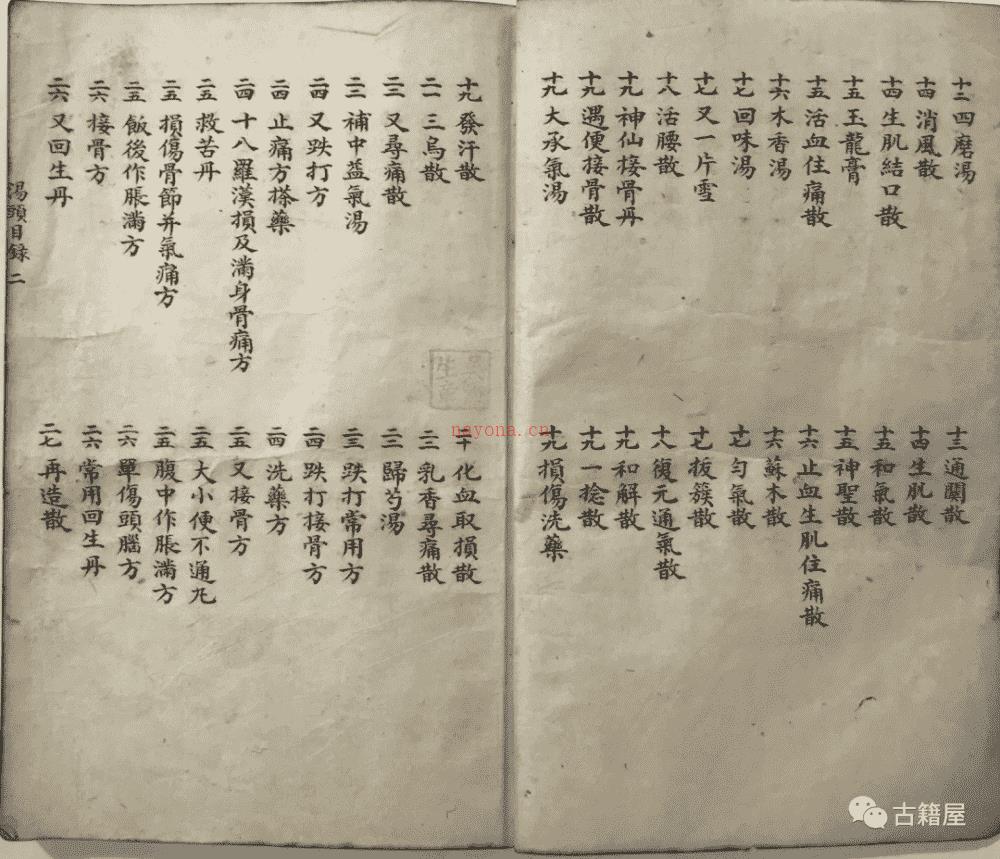 十二四磨湯
十四消風散
十四生肌結口散
十五玉龍膏
十五活血住痛散
十六木香湯
十七回味湯
十七又一片雪
十八活腰散
十九神仙接骨丹
十九遇便接骨散
十九大承氣湯
十三通關散
十四生肌散
十五和氣散
十五神聖散
十六止血生肌住痛散
十六蘇木散
十七勻氣散
十七拔簇散
十八復元通氣散
十九和解散
十九一捻散
十九損傷洗藥
十九發汗散
二一三烏散
二三又尋痛散
二三補中益氣湯
二四又跌打方
二四止痛方搽藥
二四十八羅漢損及滿身骨痛方
二五救苦丹
二五損傷骨節并氣痛方
二五飯後作脹滿方
二六接骨方
二六又回生丹
二十化血取損散
二二乳香尋痛散
二三歸芍湯
二三跌打常用方
二四跌打接骨方
二四洗藥方
二五又接骨方
二五大小便不通凡
二五腹中作脹滿方
二六單傷頭腦方
二六常用回生丹
二七再造散
湯頭目錄 二
nayona.cn
古籍屋